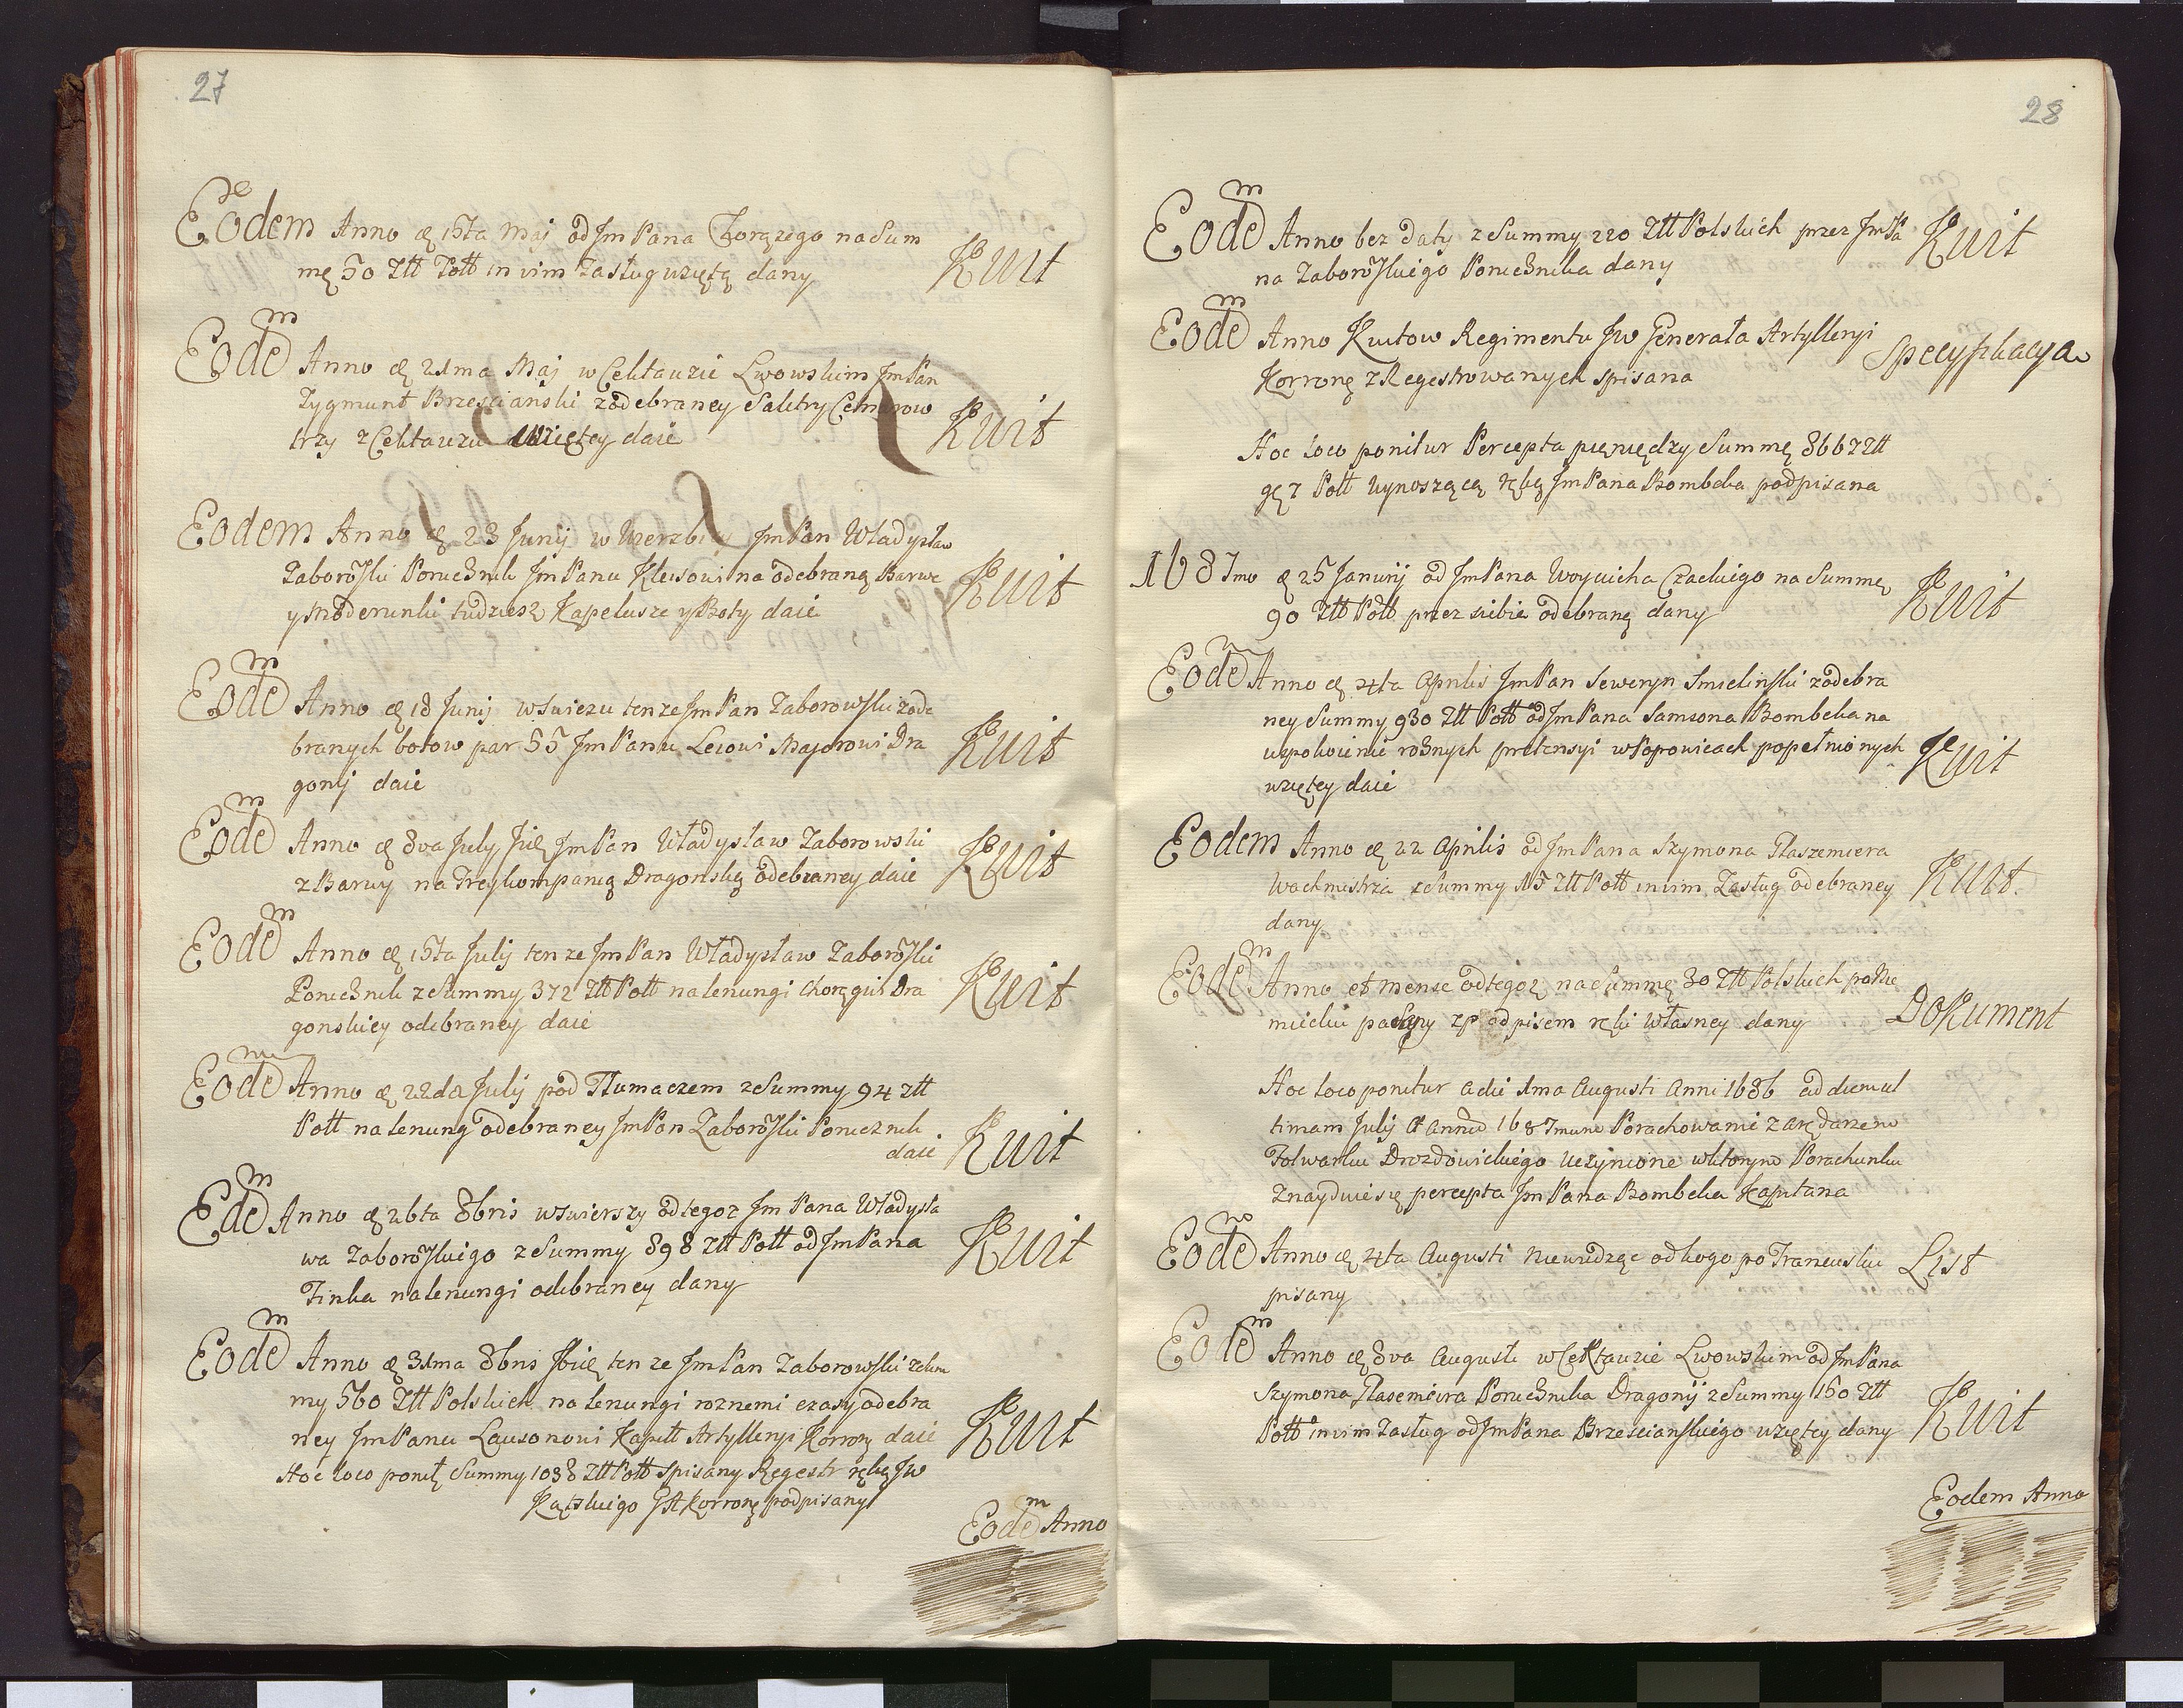 27
Eodem Anno d 15ta Maj od Jm Pana Chorązego na Sum
mę 50 Ztt Pott in vim Zasług wziętą dany Kwit
Eodem Anno d 21ma Maj w Cekłauzie Lwowskim Jm Pan
Zygmunt Brzescianski z odebraney Saletry Cetnarow
trzy z Cekłauzu Wziętey daie Kwit
Eodem Anno d 23 Junij w Jm Pan Władysław
Zaborowski Porucznik Jm Panu na odebraną Barwę
y Moderunki tudziesz Kapelusze y Boty daie Kwit
Eodem Anno d 18 Junij w tenze Jm Pan Zaborowski z ode
branych botow par 55 Jm Panu Majorowi Dra
gonij daie Kwit
Eodem Anno d 8va July Jm Pan Władysław Zaborowski
z Barwy na Frey kompanią Dragonską odebraney daie Kwit
Eodem Anno d 15ta Julij tenze Jm Pan Władysław Zaborowski
Porucznik z Summy 372 Ztt Pott na lenungi Chorągwi Dra
gonskiey odebraney daie Kwit
Eodem Anno d 22da Julij pod Tłumaczem z Summy 94 Ztt
Pott na lenung odebraney Jm Pan Zaborowski Porucznik
daie Kwit
Eodem Anno d 26ta 8bris w od tegoz Jm Pana Władysła
wa Zaborowskiego z Summy 898 Ztt Pott od Jm Pana
Finka na lenungi odebraney dany Kwit
Eodem Anno d 31ma 8bris tenze Jm Pan Zaborowski z Sum
my 560 Ztt Polskich na lenungi roznemi czasy odebra
ney Jm Panu Lausonowi Kapitt Artylleryi Korronę daie Kwit
Hoc loco Summy 1038 Ztt Pott Spisany Regestr ręką Jw
Kątskiego GA Korronę podpisany
Eodem Anno
28
Eodem Anno bez daty z Summy 220 Ztt Polskich przez Jm Pa
na Zaborowskiego Porucznika dany Kwit
Eodem Anno Kwitow Regimentu Jw Generała Artylleryi
Korronę z Regestrowanych spisana Specyfikacya
Hoc loco ponitur Percepta pieniędzy Summę 8667 Ztt
gr 7 Pott wynoszącą ręką Jm Pana Bombeka podpisana
1687mo d 25 Januarij od Jm Pana Woyciecha Czackiego na Summę
90 Ztt Pott przez siebie odebraną dany Kwit
Eodem Anno d 4ta Aprilis Jm Pan Seweryn Smielinski z odebra
ney Summy 930 Ztt Pott od Jm Pana Samsona Bombeka na
uspokoienie roznych pretensyi w Popowicach popełnionych
wziętey daie Kwit
Eodem Anno d 22 Aprilis od Jm Pana Szymona Płaszemiera
Wachmistrza z Summy 15 Ztt Pott in vim Zasług odebraney
dany Kwit
Eodem Anno et mense od tegoz na Summę 30 Ztt Polskich po Nie
miecku pisany z podpisem ręki własney dany Dokument
Hoc loco ponitur a die 1ma Augusti Anni 1686 ad diem ul
timam Julij Anni 1687mum Porachowanie z Arędarzem
Folwarku Drozdowickiego uczynione w ktorym Porachunku
Znayduie się percepta Jm Pana Bombeka Kapitana
Eodem Anno d 4ta Augusti niewidząc od kogo po Francusku
pisany List
Eodem Anno d 8va Augusti w Cekłauzie Lwowskim od Jm Pana
Szymona Płasemiera Porucznika Dragonij z Summy 150 Ztt
Pott in vim Zasług od Jm Pana Brzescianskiego wziętey dany Kwit
Eodem Anno